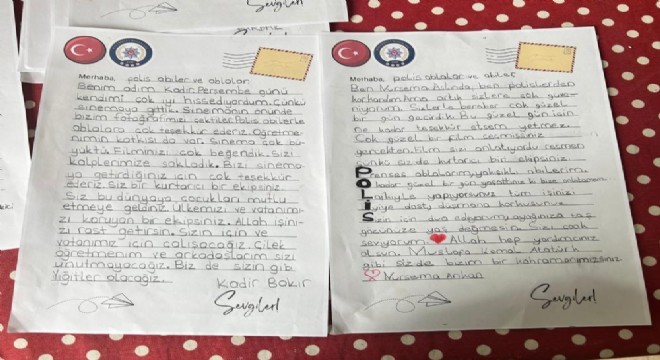 Merhaba, polis abiler ve ablalar
Benim adım Kadir. Perşembe günü
kendimi çok iyi hissediyordum. Çünkü
sinemaya gittik. Sinemanın önünde
bizim fotoğrafımızı çektiler. Polis abilerle
ablalara çok teşekkür ederiz. Öğretme-
nimin katkısı da var. Sinema çok bü-
yüktü. Filminizi çok beğendik. Sizi
kalplerimize sakladık. Bizi sinema
ya getirdiğiniz için çok teşekkür
ederiz. Siz bir kurtarıcı bir ekipsiniz.
Siz bu dünyaya çocukları mutlu
etmeye geldiniz. Ülkemizi ve vatanımı-
zı koruyan bir ekipsiniz. Allah işini-
zi rast getirsin. Sizin için ve
vatanımız için çalışacağız. Çilek
öğretmenim ve arkadaşlarım sizi
unutmayacağız. Biz de sizin gibi
yiğitler olacağız.
Kadir Bakır
Sevgiler!
Merhaba, polis ablalar ve abiler
Ben Nursema Aslında, ben polislerden
korkardım ama artık sizlere çok güve-
niyorum. Sizlerle beraber çok güzel
bir gün geçirdik. Bu güzel gün için
ne kadar teşekkür etsem yetmez.
Çok güzel bir film seçmişsiniz
gerçekten film sizi anlatıyordu resmen
çünkü siz de kurtarıcı bir ekipsiniz.
POLİS
Prenses ablalarım, yakışıklı abilerim.
kadar güzel bir gün yaşattınız ki bize
yapıyorsunuz tüm işinizi
dosta düşmana korkusunuz
Sizin için dua ediyorum, ayağınıza taş
gözünüze yaş değmesin. Sizi çok
seviyorum. Allah hep yardımcınız
olsun. Mustafa Kemal Atatürk
gibi siz de bizim bir kahramanımızsınız
Nursema Arıkan
Sevgiler!